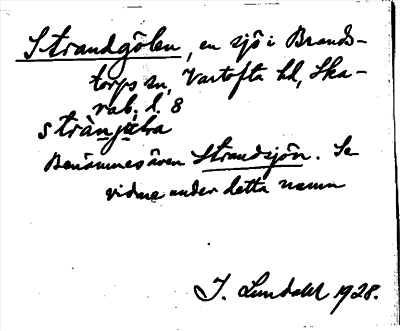 Strandgölen, en sjö i Brands-
torps sn, Vartofta hd, Ska-
rab. l. 8
strànjøɫna
Benämnes även Strandsjön. Se
vidare under detta namn
J. Lundahl 1928.